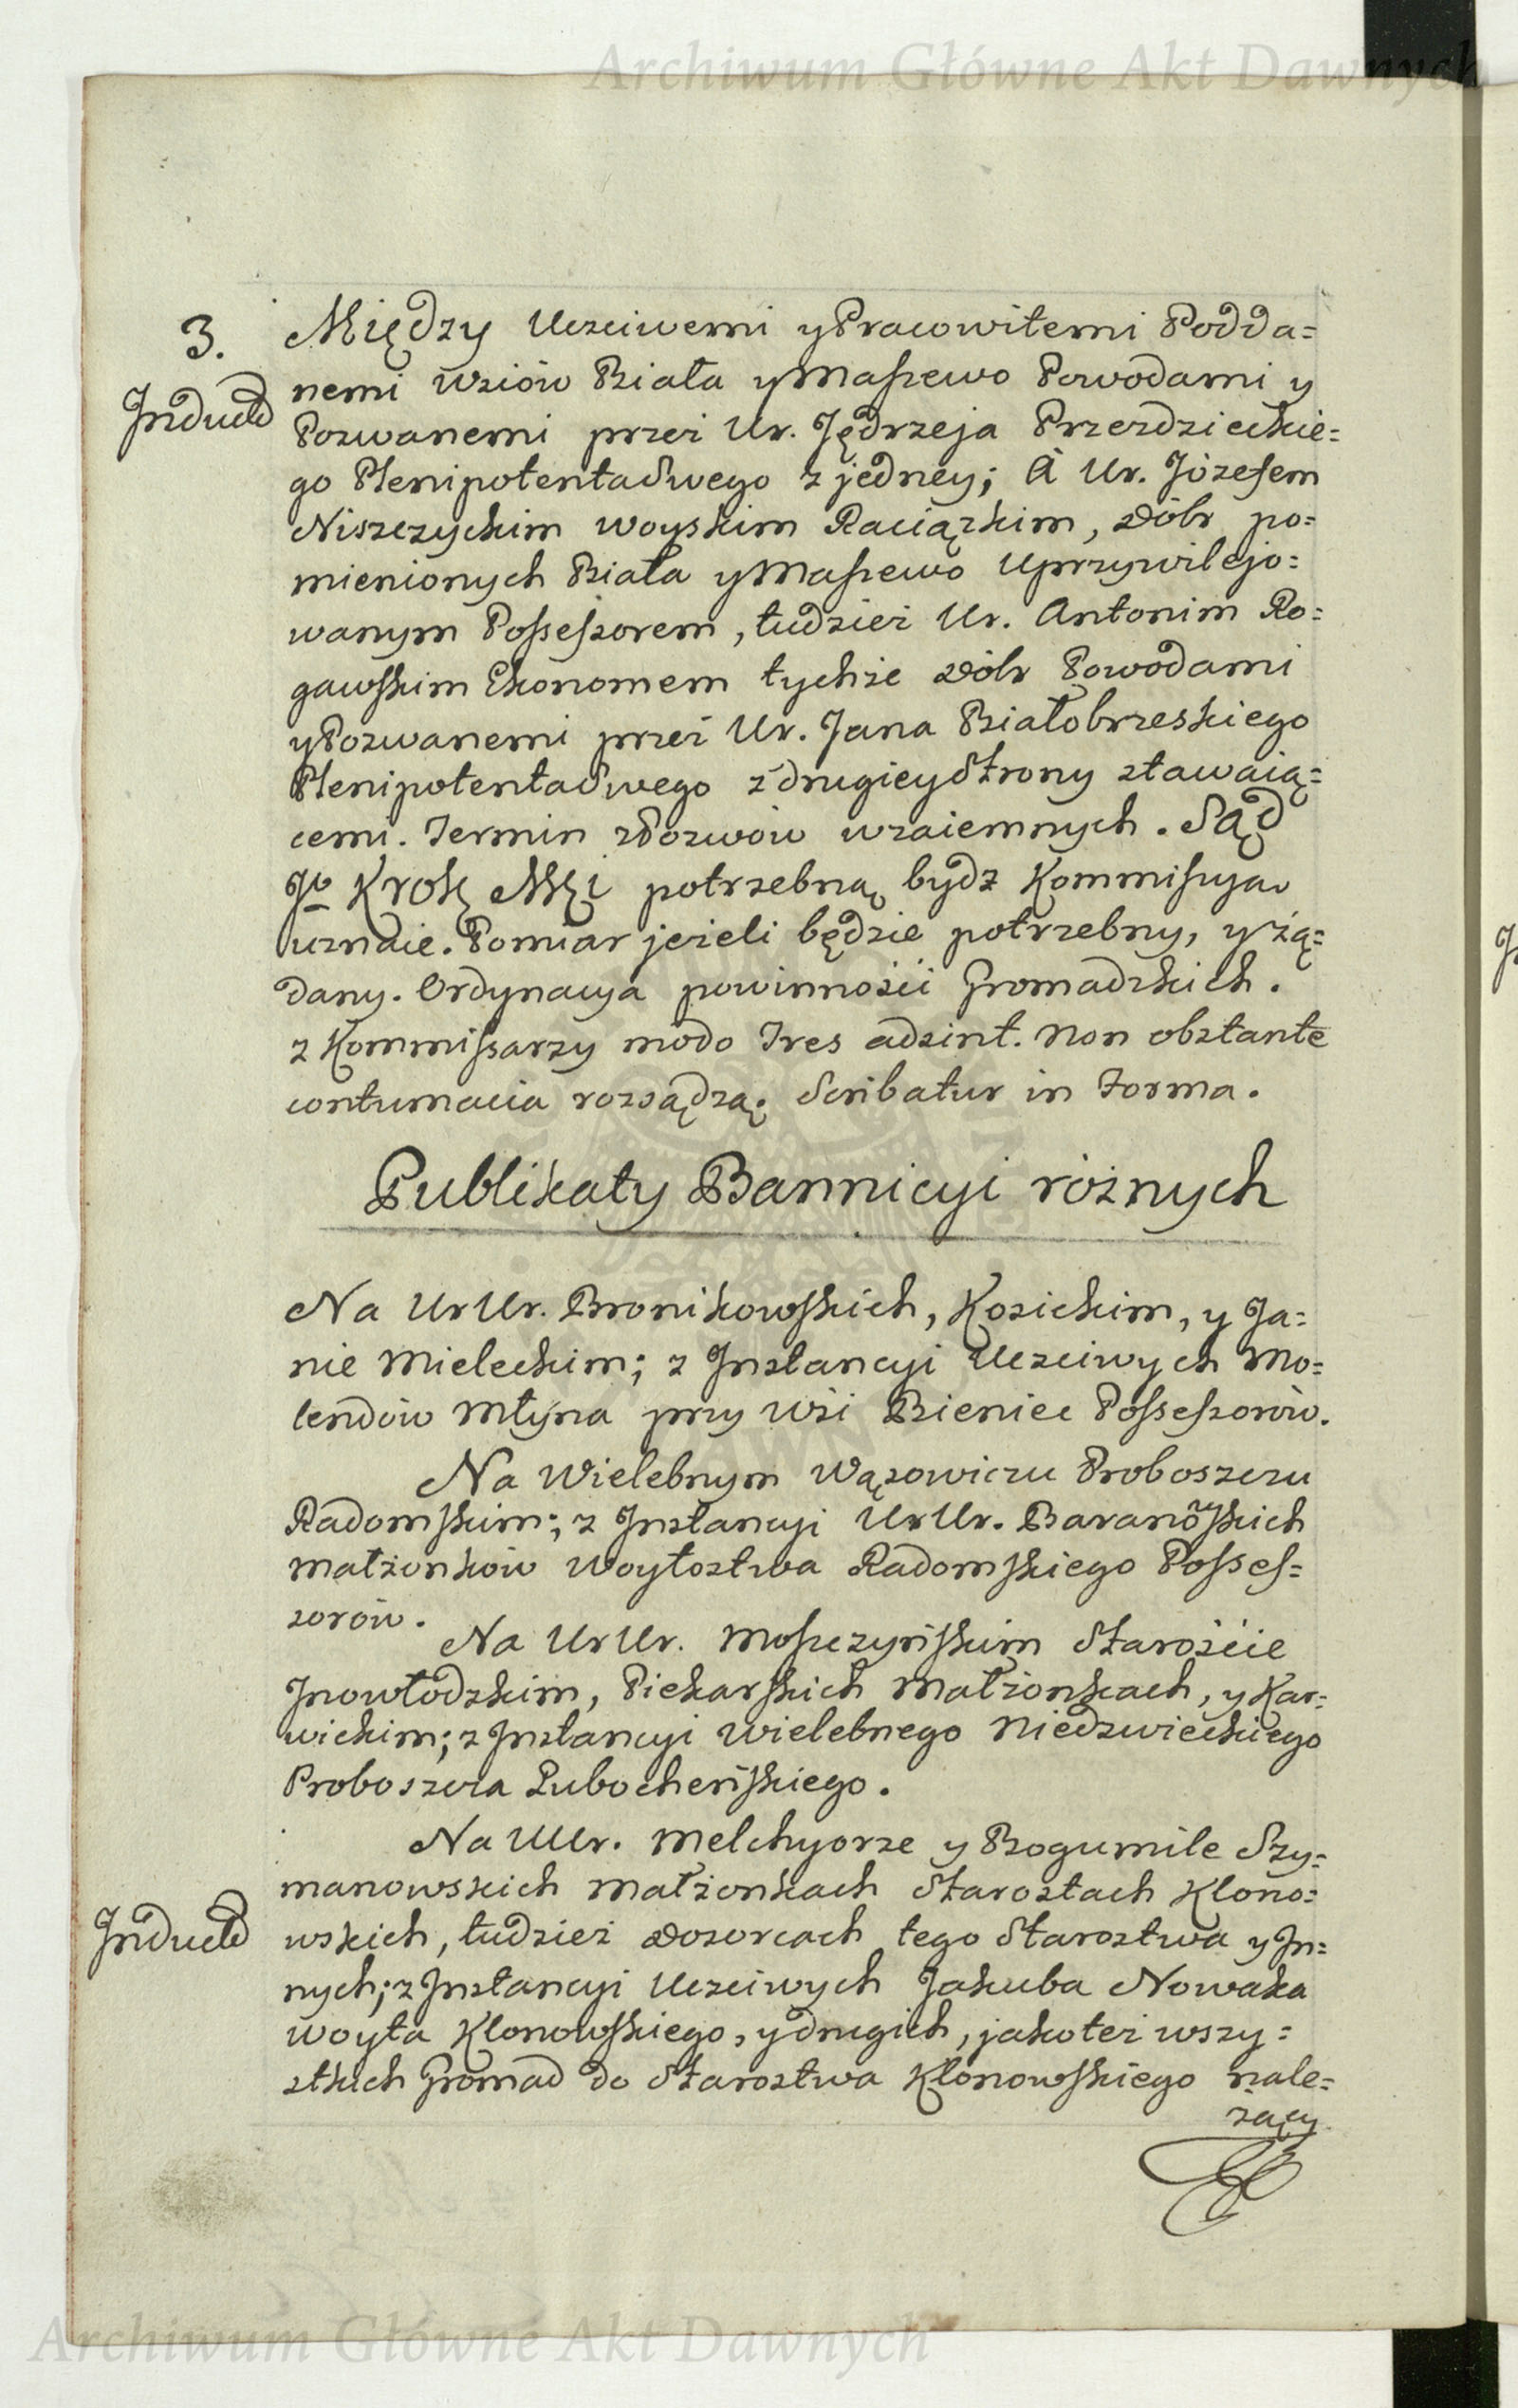 Archiwum Główne Akt Dawnych
3.
Induct
Między Uczciwemi y Pracowitemi Podda=
nemi Wsiów Biała y Maszewo Powodami y
Pozwanemi przez Ur. Jędrzeja Przezdzieckie=
go Plenipotentadwego z jedney; A Ur. Józefem
Niszczyckim Woyskim Raciązkim, Dóbr po=
mienionych Biała y Maszewo Uprzywilejo=
wanym Possessorem, tudzież Ur. Antonim Ro=
gawskim Ekonomem tychże Dóbr Powodami
y Pozwanemi przez Ur. Jana Białobrzeskiego
Plenipotentadwego z drugiey Strony stawaią=
cemi. Termin z Pozwów wzaiemnych. Sąd
Jo Krolę Mści potrzebną bydz Kommissya
uznaie. Pomiar jeżeli będzie potrzebny, y żą=
dany. Ordynacya powinności Gromadzkich.
z Kommissarzy modo Tres adsint. Non obstante
contumacia rozsądzą. Scribatur in Forma.
Publikaty Bannicyi różnych
Na UrUr. Bronikowskich, Kosickim, y Ja=
nie Mieleckim; z Instancyi Uczciwych Mo=
lendów Młyna przy Wsi Bieniec Possessorów.
Na Wielebnym Wąsowiczu Proboszczu
Radomskim; z Instancyi UrUr. Baranowskich
Małżonków Woytostwa Radomskiego Posses=
sorów.
Na UrUr. Moszczyńskim Starości­e
Inowłodzkim, Piekarskich Małżonkach, y Kar=
wickim; z Instancyi Wielebnego Niedzwieckiego
Proboszcza Lubocheńskiego.
Na UUr. Melchyorze y Bogumile Szy=
manowskich Małżonkach Starostach Klono=
Induct
wskich, tudzież Dozorcach tego Starostwa y In=
nych; z Instancyi Uczciwych Jakuba Nowaka
Woyta Klonowskiego, y drugich, jakoteż wszy=
stkich Gromad do Starostwa Klonowskiego nale=
żący
Archiwum Główne Akt Dawnych